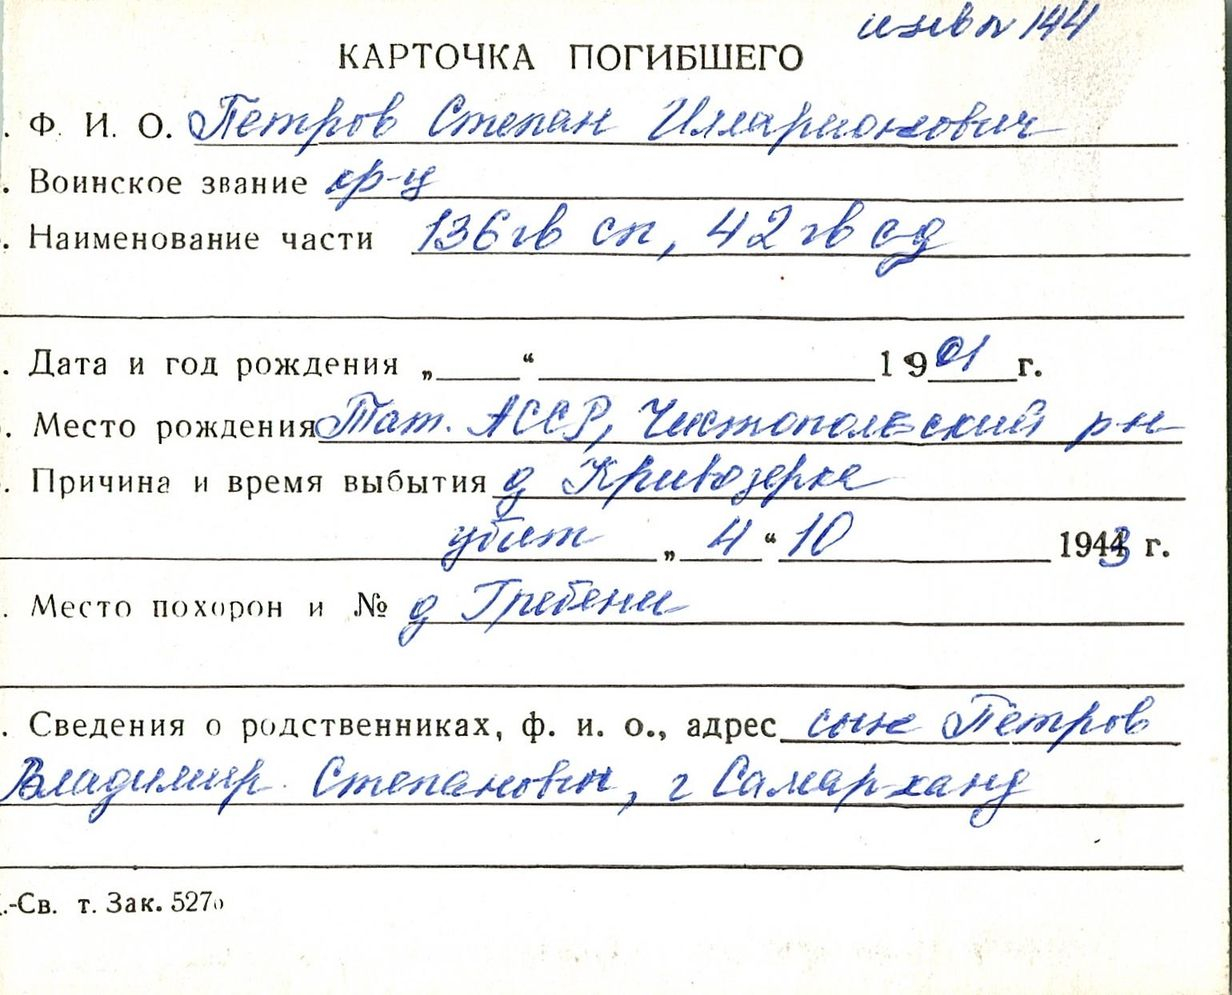 144
КАРТОЧКА ПОГИБШЕГО
. Ф. И. О. Петров Степан Илларионович
. Воинское звание кр-ц
. Наименование части 136 гв сп, 42 гв сд
. Дата и год рождения „ “ 1901 г.
. Место рождения Тат. АССР, Чистопольский р-н
. Причина и время выбытия д Кривозерке
убит „ 4 “ 10 1943 г.
. Место похорон и № д Гребени
. Сведения о родственниках, ф. и. о., адрес сын Петров
Владимир Степанович, г Самарханд
.-Св. т. Зак. 527